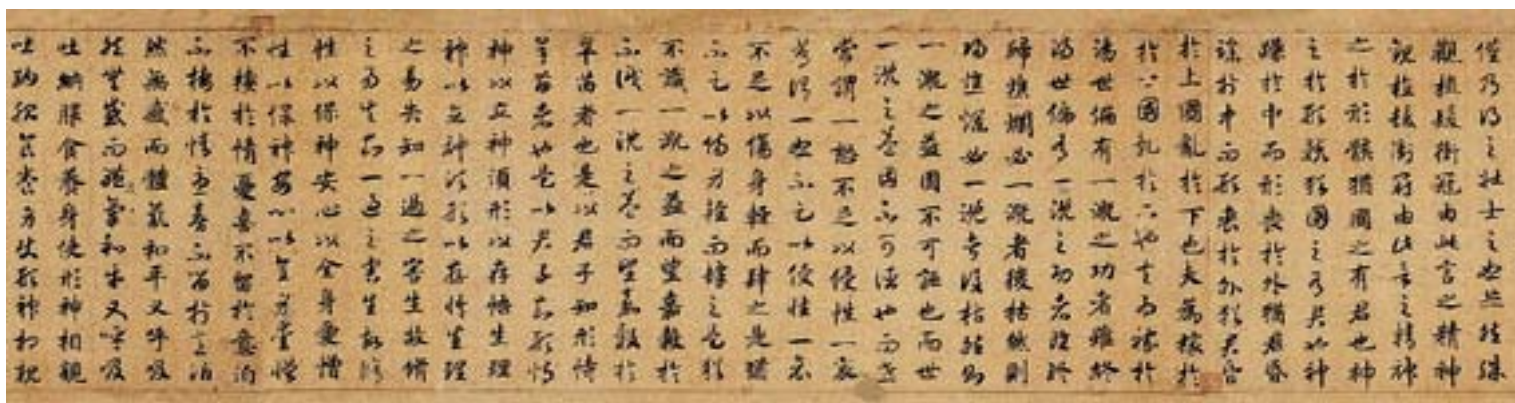 僅乃得之壯士之怒赫然殊
觀植髮衝冠由此言之精神
觀植髮衝冠由此言之精神
之於形骸猶國之有君也神
之於形骸猶國之有君也神
躁於中而形喪於外猶君昏
躁於中而形喪於外猶君昏
於上國亂於下也夫為稼於
於上國亂於下也夫為稼於
湯世偏有一溉之功者雖終
湯世偏有一溉之功者雖終
歸燋爛必一溉者後枯然則
歸燋爛必一溉者後枯然則
一溉之益固不可誣也而世
一溉之益固不可誣也而世
常謂一怒不足以侵性一哀
常謂一怒不足以侵性一哀
不足以傷身輕而肆之是猶
不足以傷身輕而肆之是猶
不識一溉之益而望嘉穀於
不識一溉之益而望嘉穀於
旱苗者也是以君子知形恃
旱苗者也是以君子知形恃
神以立神須形以存悟生理
神以立神須形以存悟生理
之易失知一過之害生故脩
之易失知一過之害生故脩
性以保神安心以全身愛憎
性以保神安心以全身愛憎
不棲於情憂喜不留於意泊
不棲於情憂喜不留於意泊
然無感而體氣和平又呼吸
然無感而體氣和平又呼吸
吐納服食養身使形神相親
吐納服食養身使形神相親